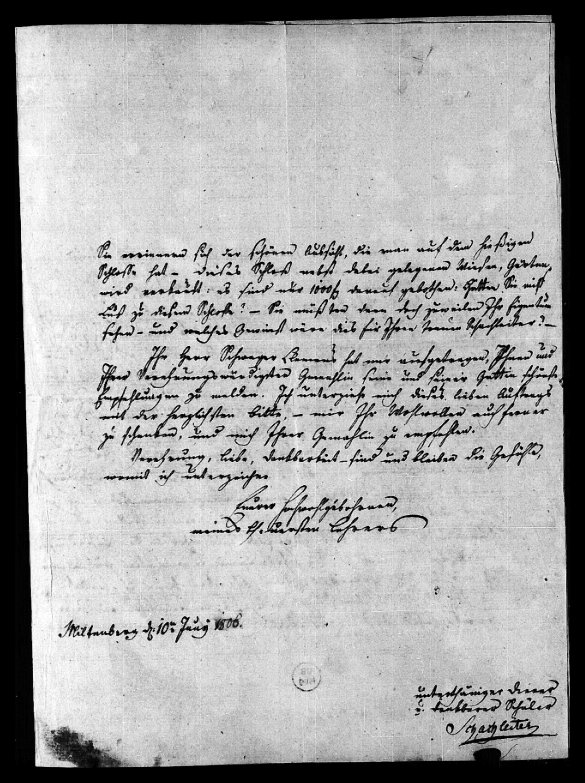 Sie erinnern sich der schönen Aussicht, die man auf dem hiesigen
Schlosse hat – dieses Schloß nebst dabei gelegenen Wiesen, Gärten,
wird verkauft: es sind nur 1000 f darauf gebothen: hätten Sie nicht
Lust zu diesem Schlosse? – Sie müßten denn doch zuweilen Ihr Eigenthum
sehen – und welches Gewinst wäre dies für Ihren Schachleiter? –
Ihr Herr Schwager Clemens hat mir aufgetragen, Ihnen und
Ihrer Verehrungswürdigsten Gemahlin seine und seiner Gattin schönste
Empfehlungen zu melden. Ich unterziehe mich dieses lieben Auftrags
mit der herzlichsten Bitte, – mir Ihr Wohlwollen auch ferner
zu schenken, und mich Ihrer Gemahlin zu empfehlen.
Verehrung, Liebe, Dankbarkeit – sind und bleiben die Gefühle,
womit ich unterzeichne
Euerer Hochwohlgebohrnen,
meines theuersten Lehrers
Miltenberg d. 10n Juny 1806.
unterthäniger Diener
u. dankbarer Schüler
Schachleiter